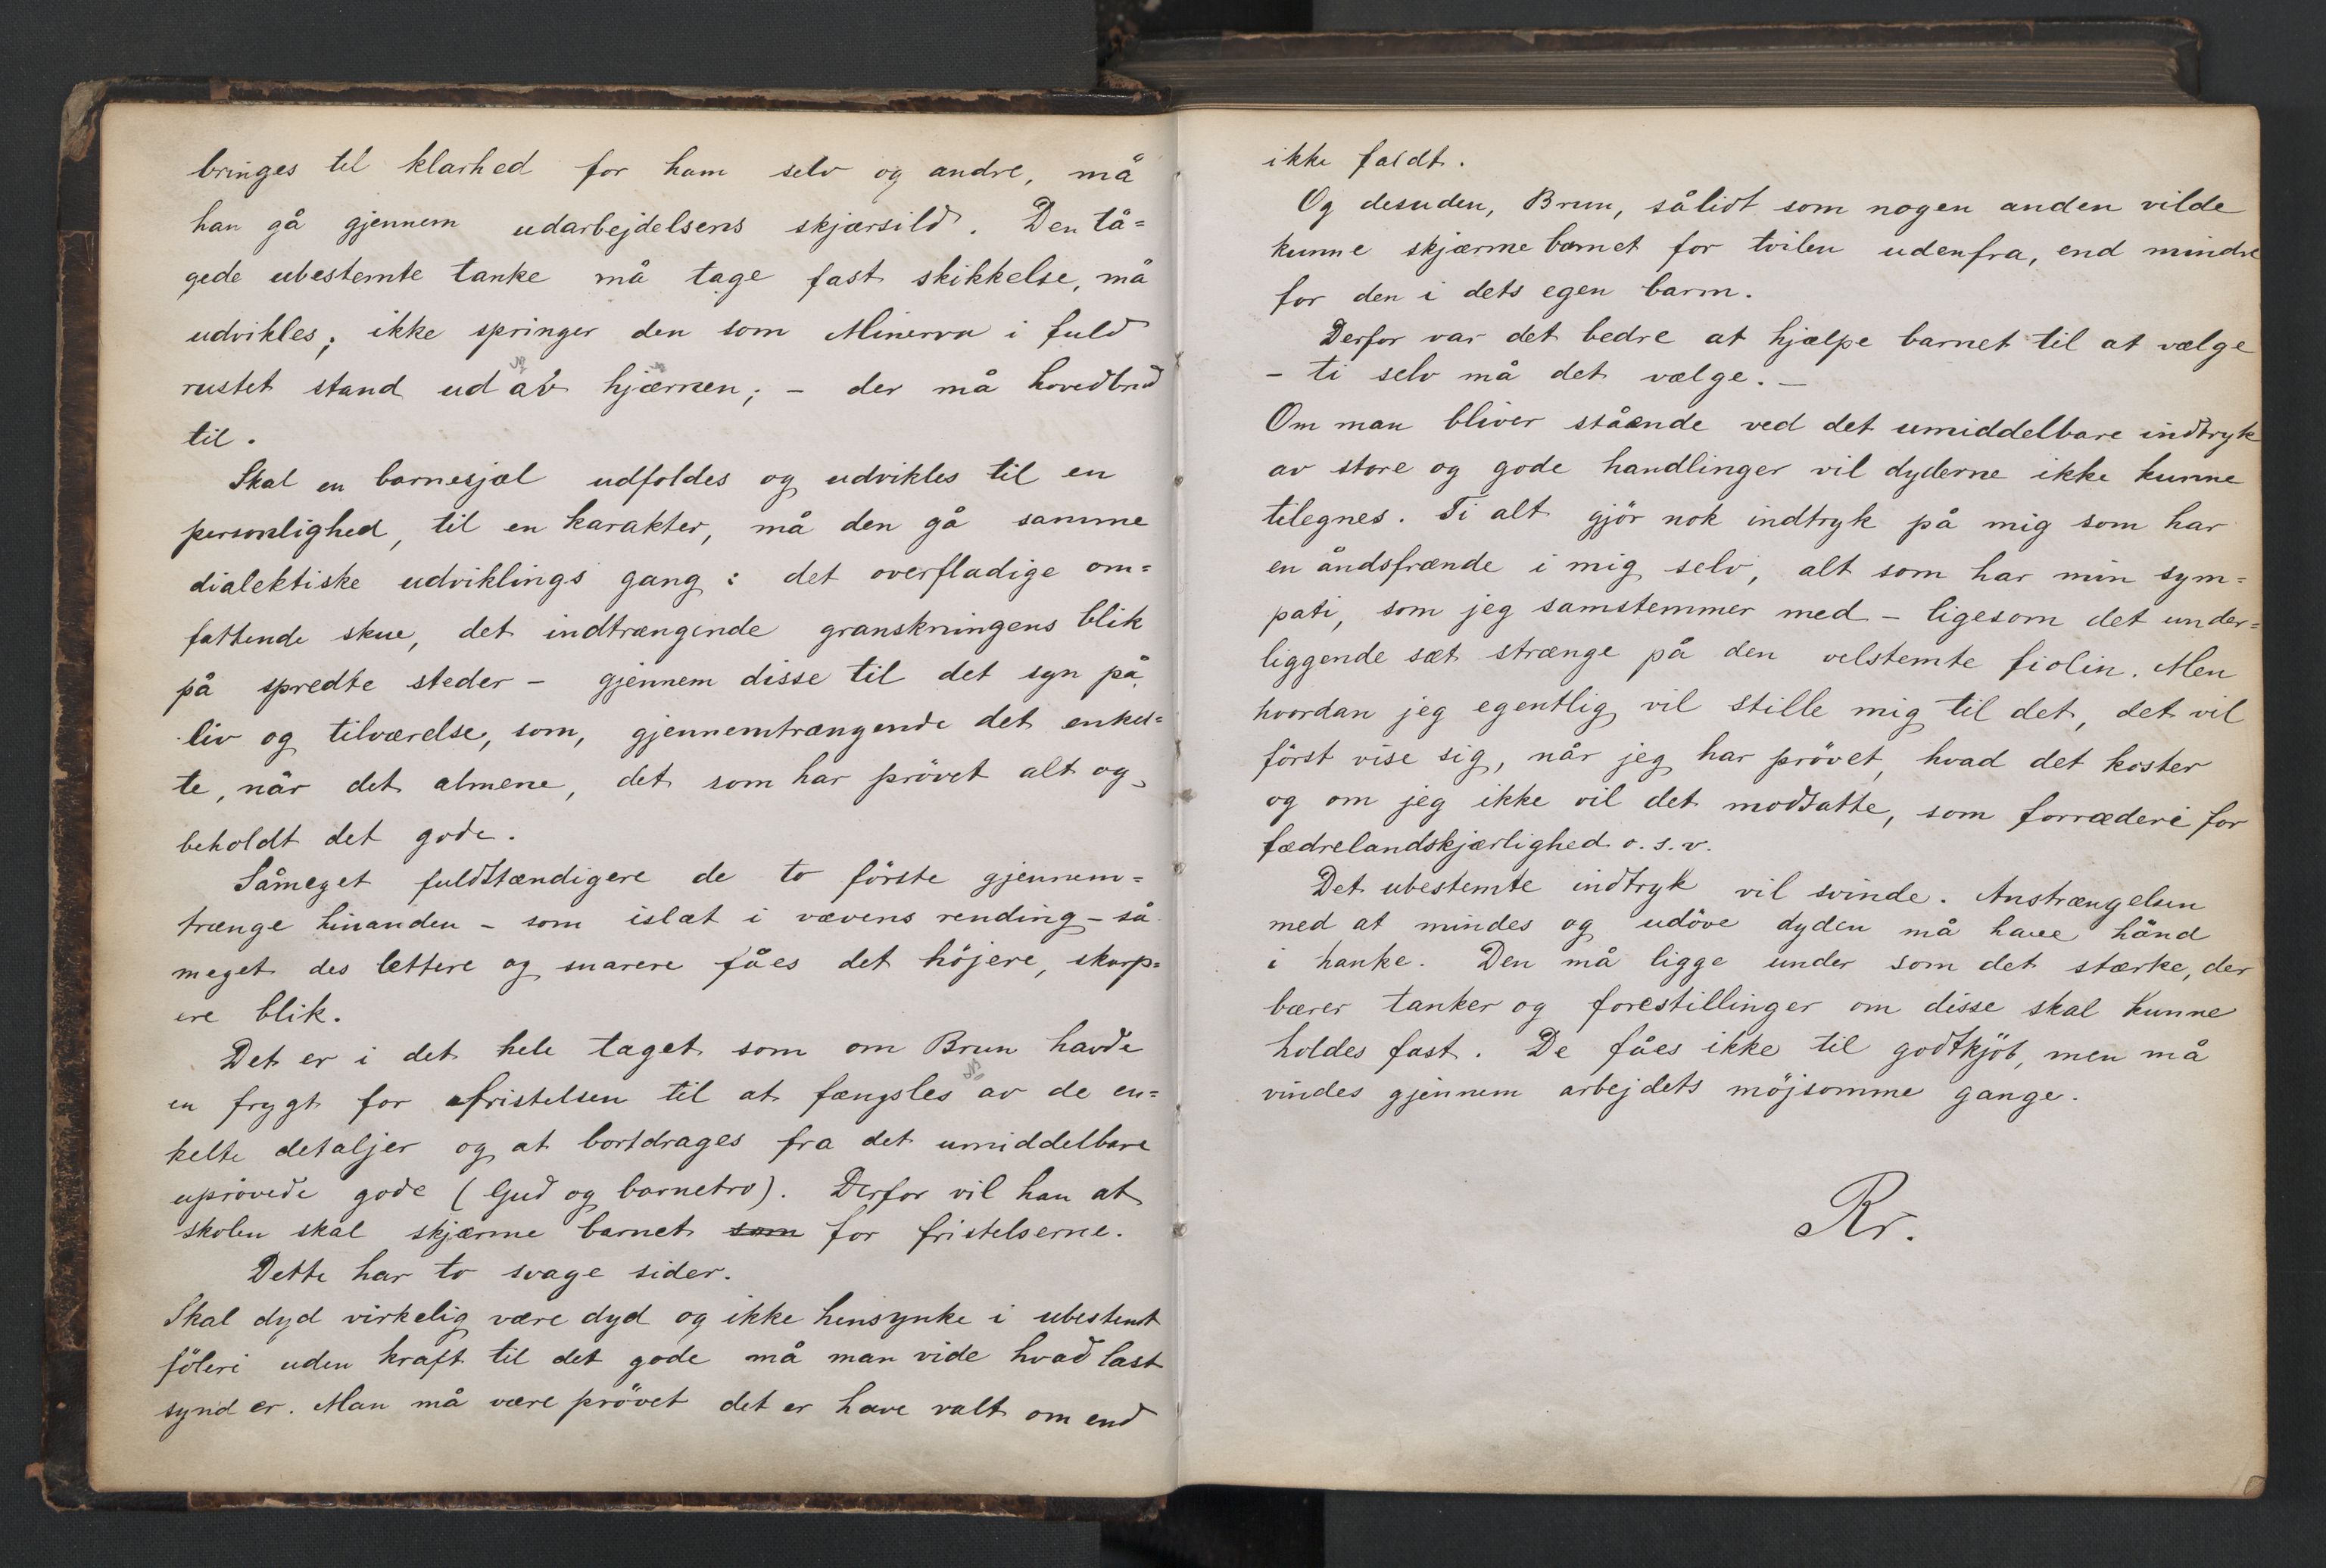 bringes til klarhed for ham selv og andre, må
han gå gjennem udarbejdelsens skjærsild. Den tå=
gede ubestemte tanke må tage fast skikkelse, må
udvikles; ikke springer den som Minerva i fuld
rustet stand ud av hjærnen; – der må hovedbrud
til.
Skal en barnesjæl udfoldes og udvikles til en
personlighed, til en karakter, må den gå samme
dialektiske udviklings gang: det overfladige om=
fattende skue, det indtrængende granskningens blik
på spredte steder – gjennem disse til det syn på
liv og tilværelse, som, gjennemtrængende det enkel=
te, når det almene, det som har prövet alt og
beholdt det gode.
Såmeget fuldstændigere de to förste gjennem=
trænge hinanden – som islæt i vævens rending – så
meget des lettere og snarere fåes det höjere, skarp=
ere blik.
Det er i det hele taget som om Brun havde
en frygt for fristelsen til at fængsles av de en=
kelte detaljer og at bortdrages fra det umiddelbare
uprövede gode (Gud og barnetro). Derfor vil han at
skolen skal skjærme barnet som for fristelserne.
Dette har to svage sider.
Skal dyd virkelig være dyd og ikke hensynke i ubestemt
föleri uden kraft til det gode må man vide hvad last
synd er. Man må være prövet det er have valt om end
ikke faldt.
Og desuden, Brun, sålidt som nogen anden vilde
kunne skjærme barnet for tvilen udenfra, end mindre
for den i dets egen barm.
Derfor var det bedre at hjælpe barnet til at vælge
– ti selv må det vælge. –
Om man bliver stående ved det umiddelbare indtryk
av store og gode handlinger vil dyderne ikke kunne
tilegnes. Ti alt gjör nok indtryk på mig som har
en åndsfrænde i mig selv, alt som har min sym=
pati, som jeg samstemmer med – ligesom det under=
liggende sæt strænge på den velstemte fiolin. Men
hvordan jeg egentlig vil stille mig til det, det vil
först vise sig, når jeg har prövet, hvad det koster
og om jeg ikke vil det modsatte, som forræderi for
fædrelandskjærlighed o.s.v.
Det ubestemte indtryk vil svinde. Anstrængelsen
med at mindes og udöve dyden må have hånd
i hanke. Den må ligge under som det stærke, der
bærer tanker og forestillinger om disse skal kunne
holdes fast. De fåes ikke til godtkjöb, men må
vindes gjennem arbejdets möjsomme gange.
Rr.